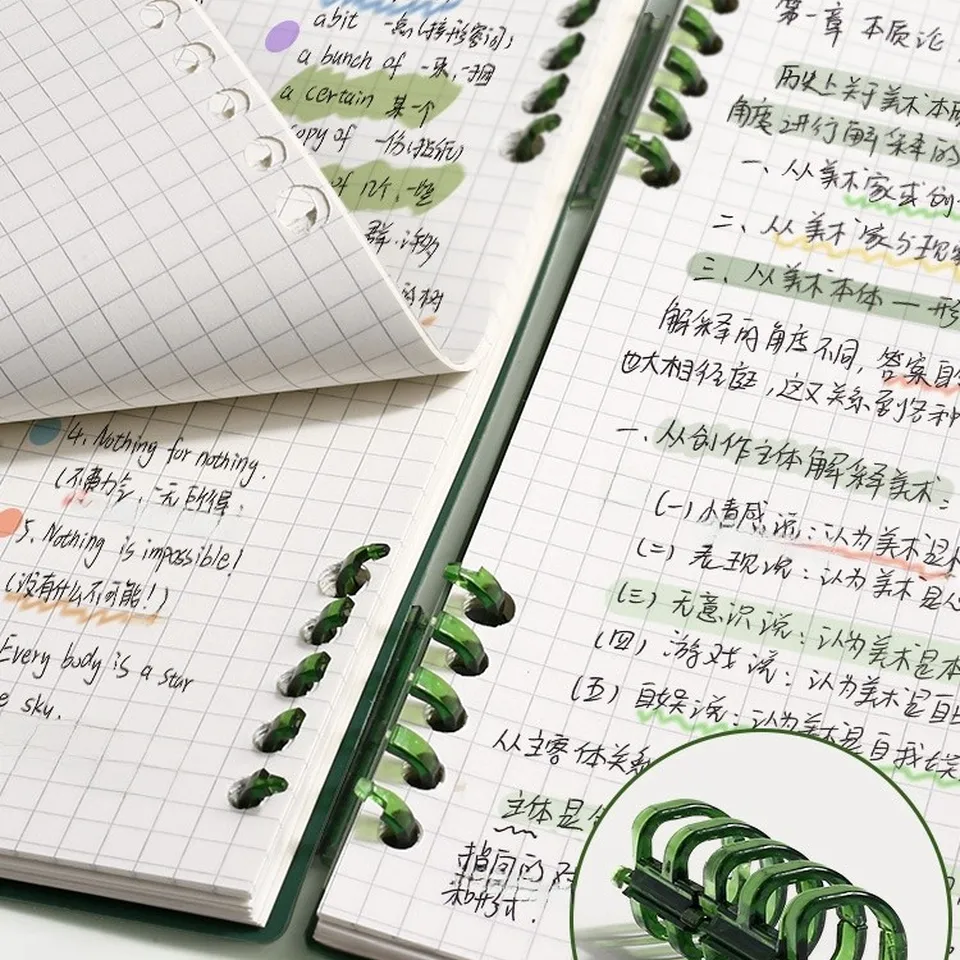 a bit 一点(接形容词)
a bunch of 一束,一捆
a certain 某一个
copy of 一份(报纸)
of 几个,一些
群.许多
的树
4. Nothing for nothing.
(不费力气,一无所得.
5. Nothing is impossible!
(没有什么不可能!)
Every body is a star
e sky.
第一章 本质论
历史上关于美术本质
角度进行解释的
一、从美术家或创
二、从美术家与现实
三、从美术本体一形
解释的角度不同,答案自
也大相径庭,这又关系到各种
一、从创作主体解释美术:
(一)情感说:认为美术是
(二)表现说:认为美术是
(三)无意识说:认为美术是本
(四)游戏说:认为美术是自
(五)自娱说:认为美术是自我娱
从主客体关系
主体是
指向的
和形式.